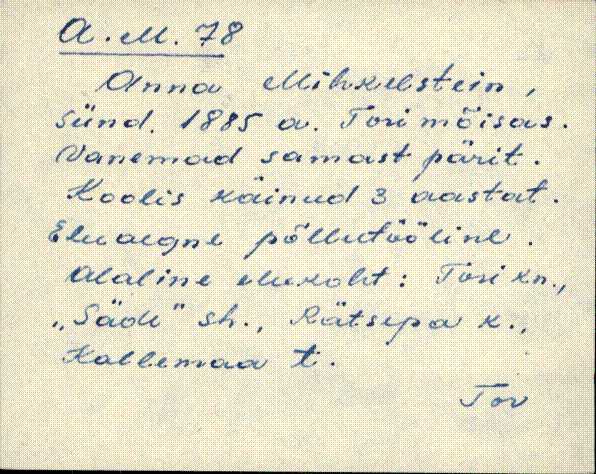 A. M. 78
Anna Mihkelstein,
Sünd. 1885 a. Tori mõisas.
Vanemad samast pärit.
Koolis käinud 3 aastat.
Eluaegne põllutööline.
Alaline elukoht: Tori kn.,
„Säde" sh., Rätsepa k.,
Kallemaa t.
Tor